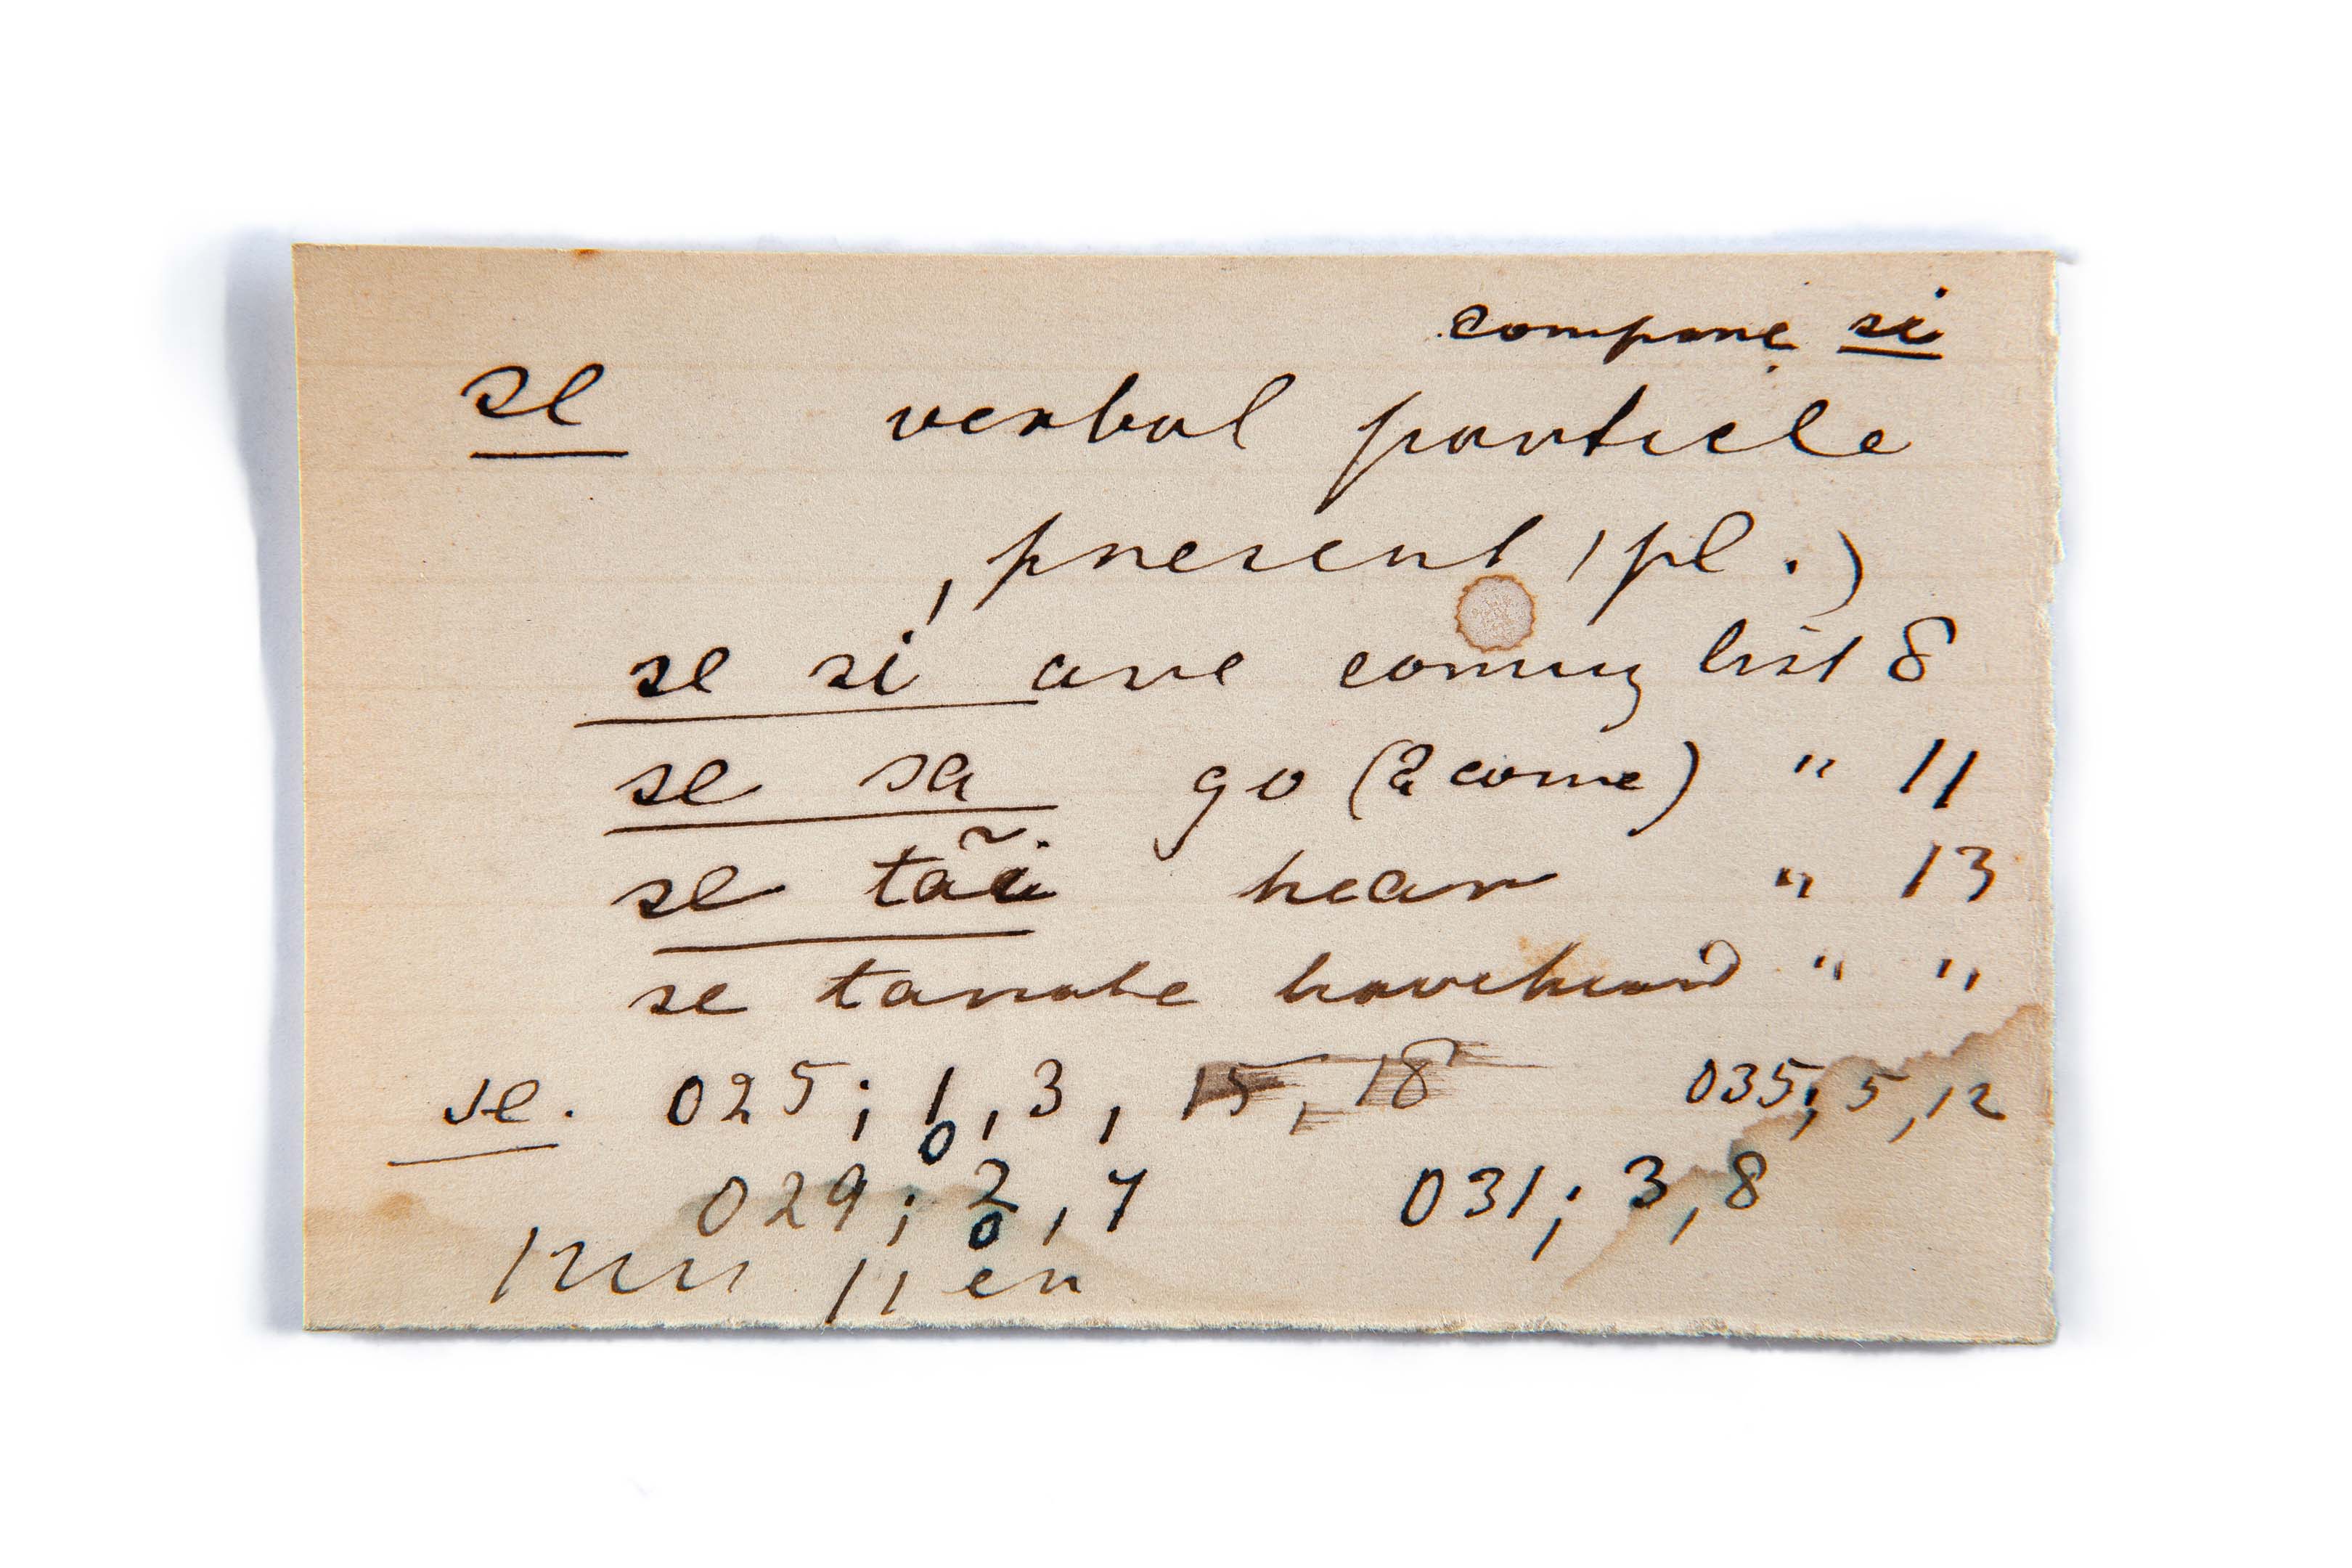 compare si
se verbal particle
, present, pl.)
se si are coming list 8
se sa go (& come) " 11
se tãi hear " 13
se tanabe have heard " "
se. 025; 1, 3, 15, 18 035; 5, 12
0
029; 2, 7 031; 3, 8
0